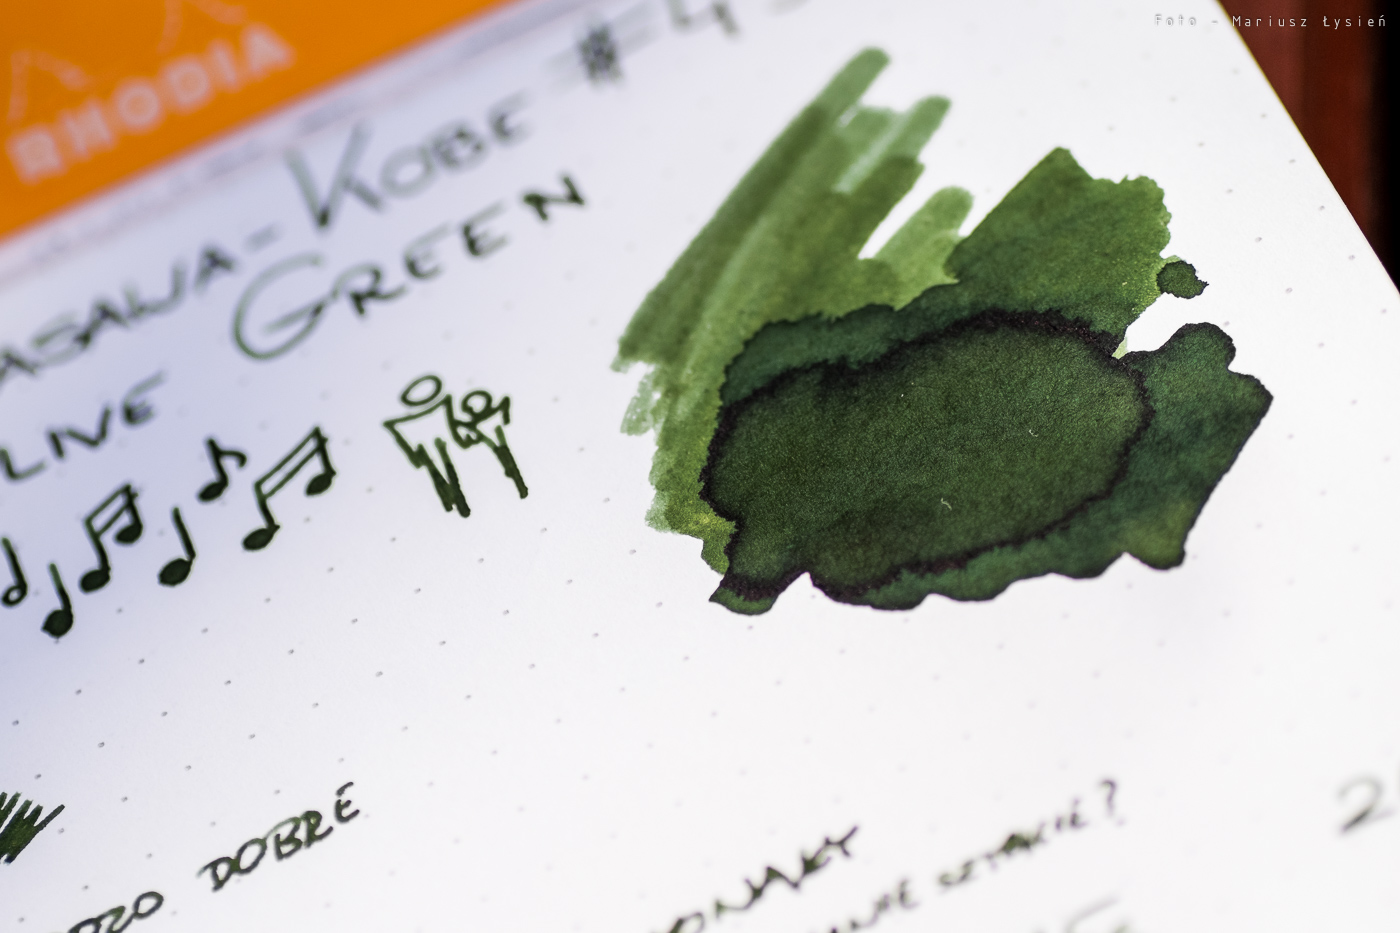 Foto - Mariusz Łysień
RHODIA
ASAWA-KOBE #4
LIVE GREEN
DZO DOBRE
ONAŁY